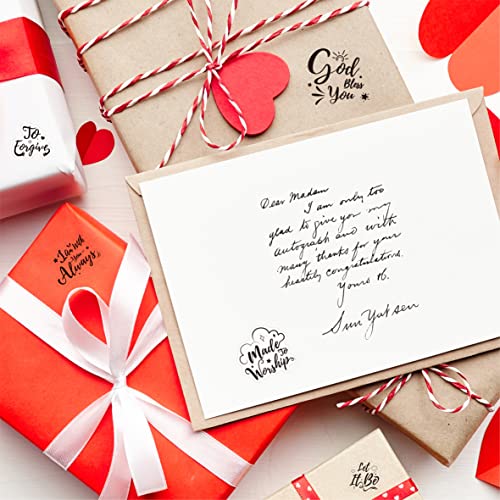 God
Bless
You
To
Forgive
I am With
You
Always
Dear Madam
I am only too
glad to give you my
autograph and with
many thanks for your
heartily congratulations.
Yours
Sun Yat sen
Made
To
Worship
Let
It Be